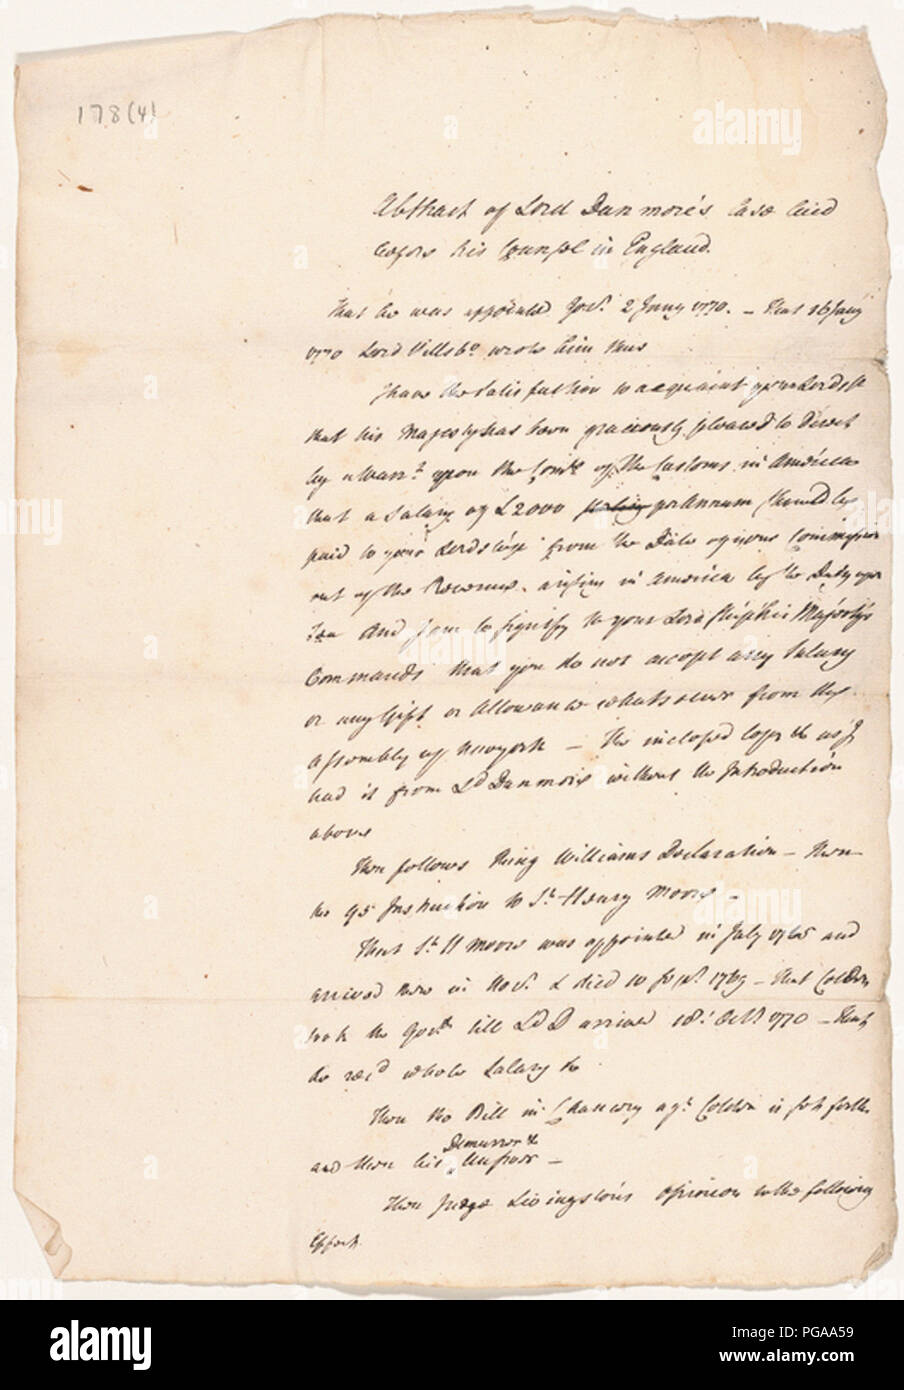 178(4)
Abstract of Lord Dunmore's Case laid
before his Counsel in England.
That he was appointed Govr. 2 Jany 1770. – That 16 Jany
1770 Lord Hillsbo. wrote him thus
I have the Satisfaction to acquaint your Lordsp
that his Majesty has been graciously pleased to Direct
by a Warrt. upon the Comrs of the Customs in America
that a Salary of £2000 sterling per Annum should be
paid to your Lordship from the Date of your Commission
out of the Revenue arising in America by the Duty upon
Tea And I am to signify to your Lordship his Majesty's
Commands that you do not accept any Salary
or any Gift or Allowance whatsoever from the
Assembly of New York – The inclosed Copy the as I
had it from Ld Dunmore without the Introduction
above
Then follows King Williams Declaration – then
the 95 Instruction to Sr. Henry Moore –
That Sr. H Moore was appointed in July 1765 and
arrived here in Novr. & died 10 Sepr. 1769 – that Colden
took the Govt. till Ld D arrived 18t. Octr. 1770 – that
he recd whole Salary &c
Then the Bill in Chancery agt. Colden is set forth
and then his Answer –
Demurrer &
Then Judge Livingston's opinion to the following
Effect.
alamy
a
Image ID: PGAA59
www.alamy.com